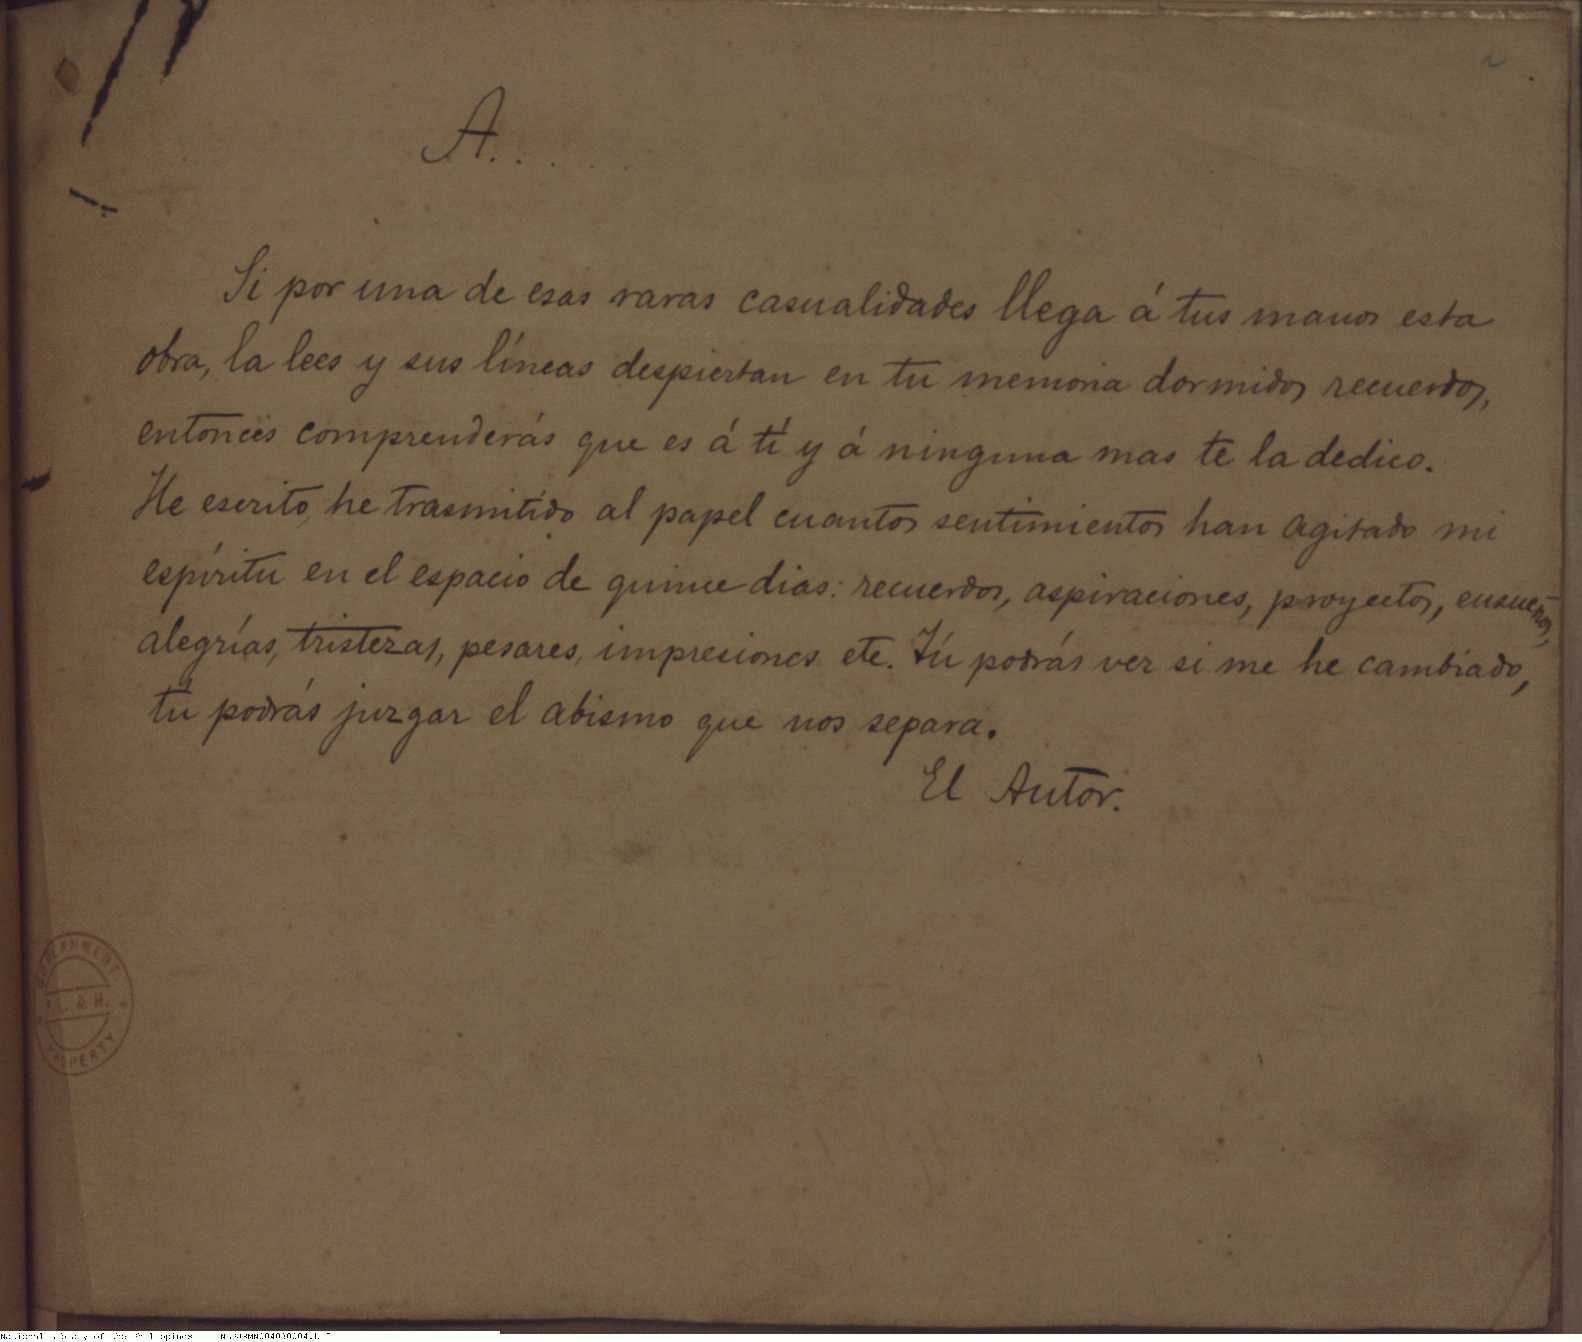 A. . . . .
Si por una de esas raras casualidades llega á tus manos esta
obra, la lees y sus líneas despiertan en tu memoria dormidos recuerdos,
entonces comprenderás que es á tí y á ninguna mas te la dedico.
He escrito, he trasmitido al papel cuantos sentimientos han agitado mi
espíritu en el espacio de quince dias: recuerdos, aspiraciones, proyectos, ensueños,
alegrías, tristezas, pesares, impresiones etc. Tú podrás ver si me he cambiado,
tú podrás juzgar el abismo que nos separa.
El Autor.
GOVERNMENT
L. & M.
PROPERTY
National Library of the Philippines